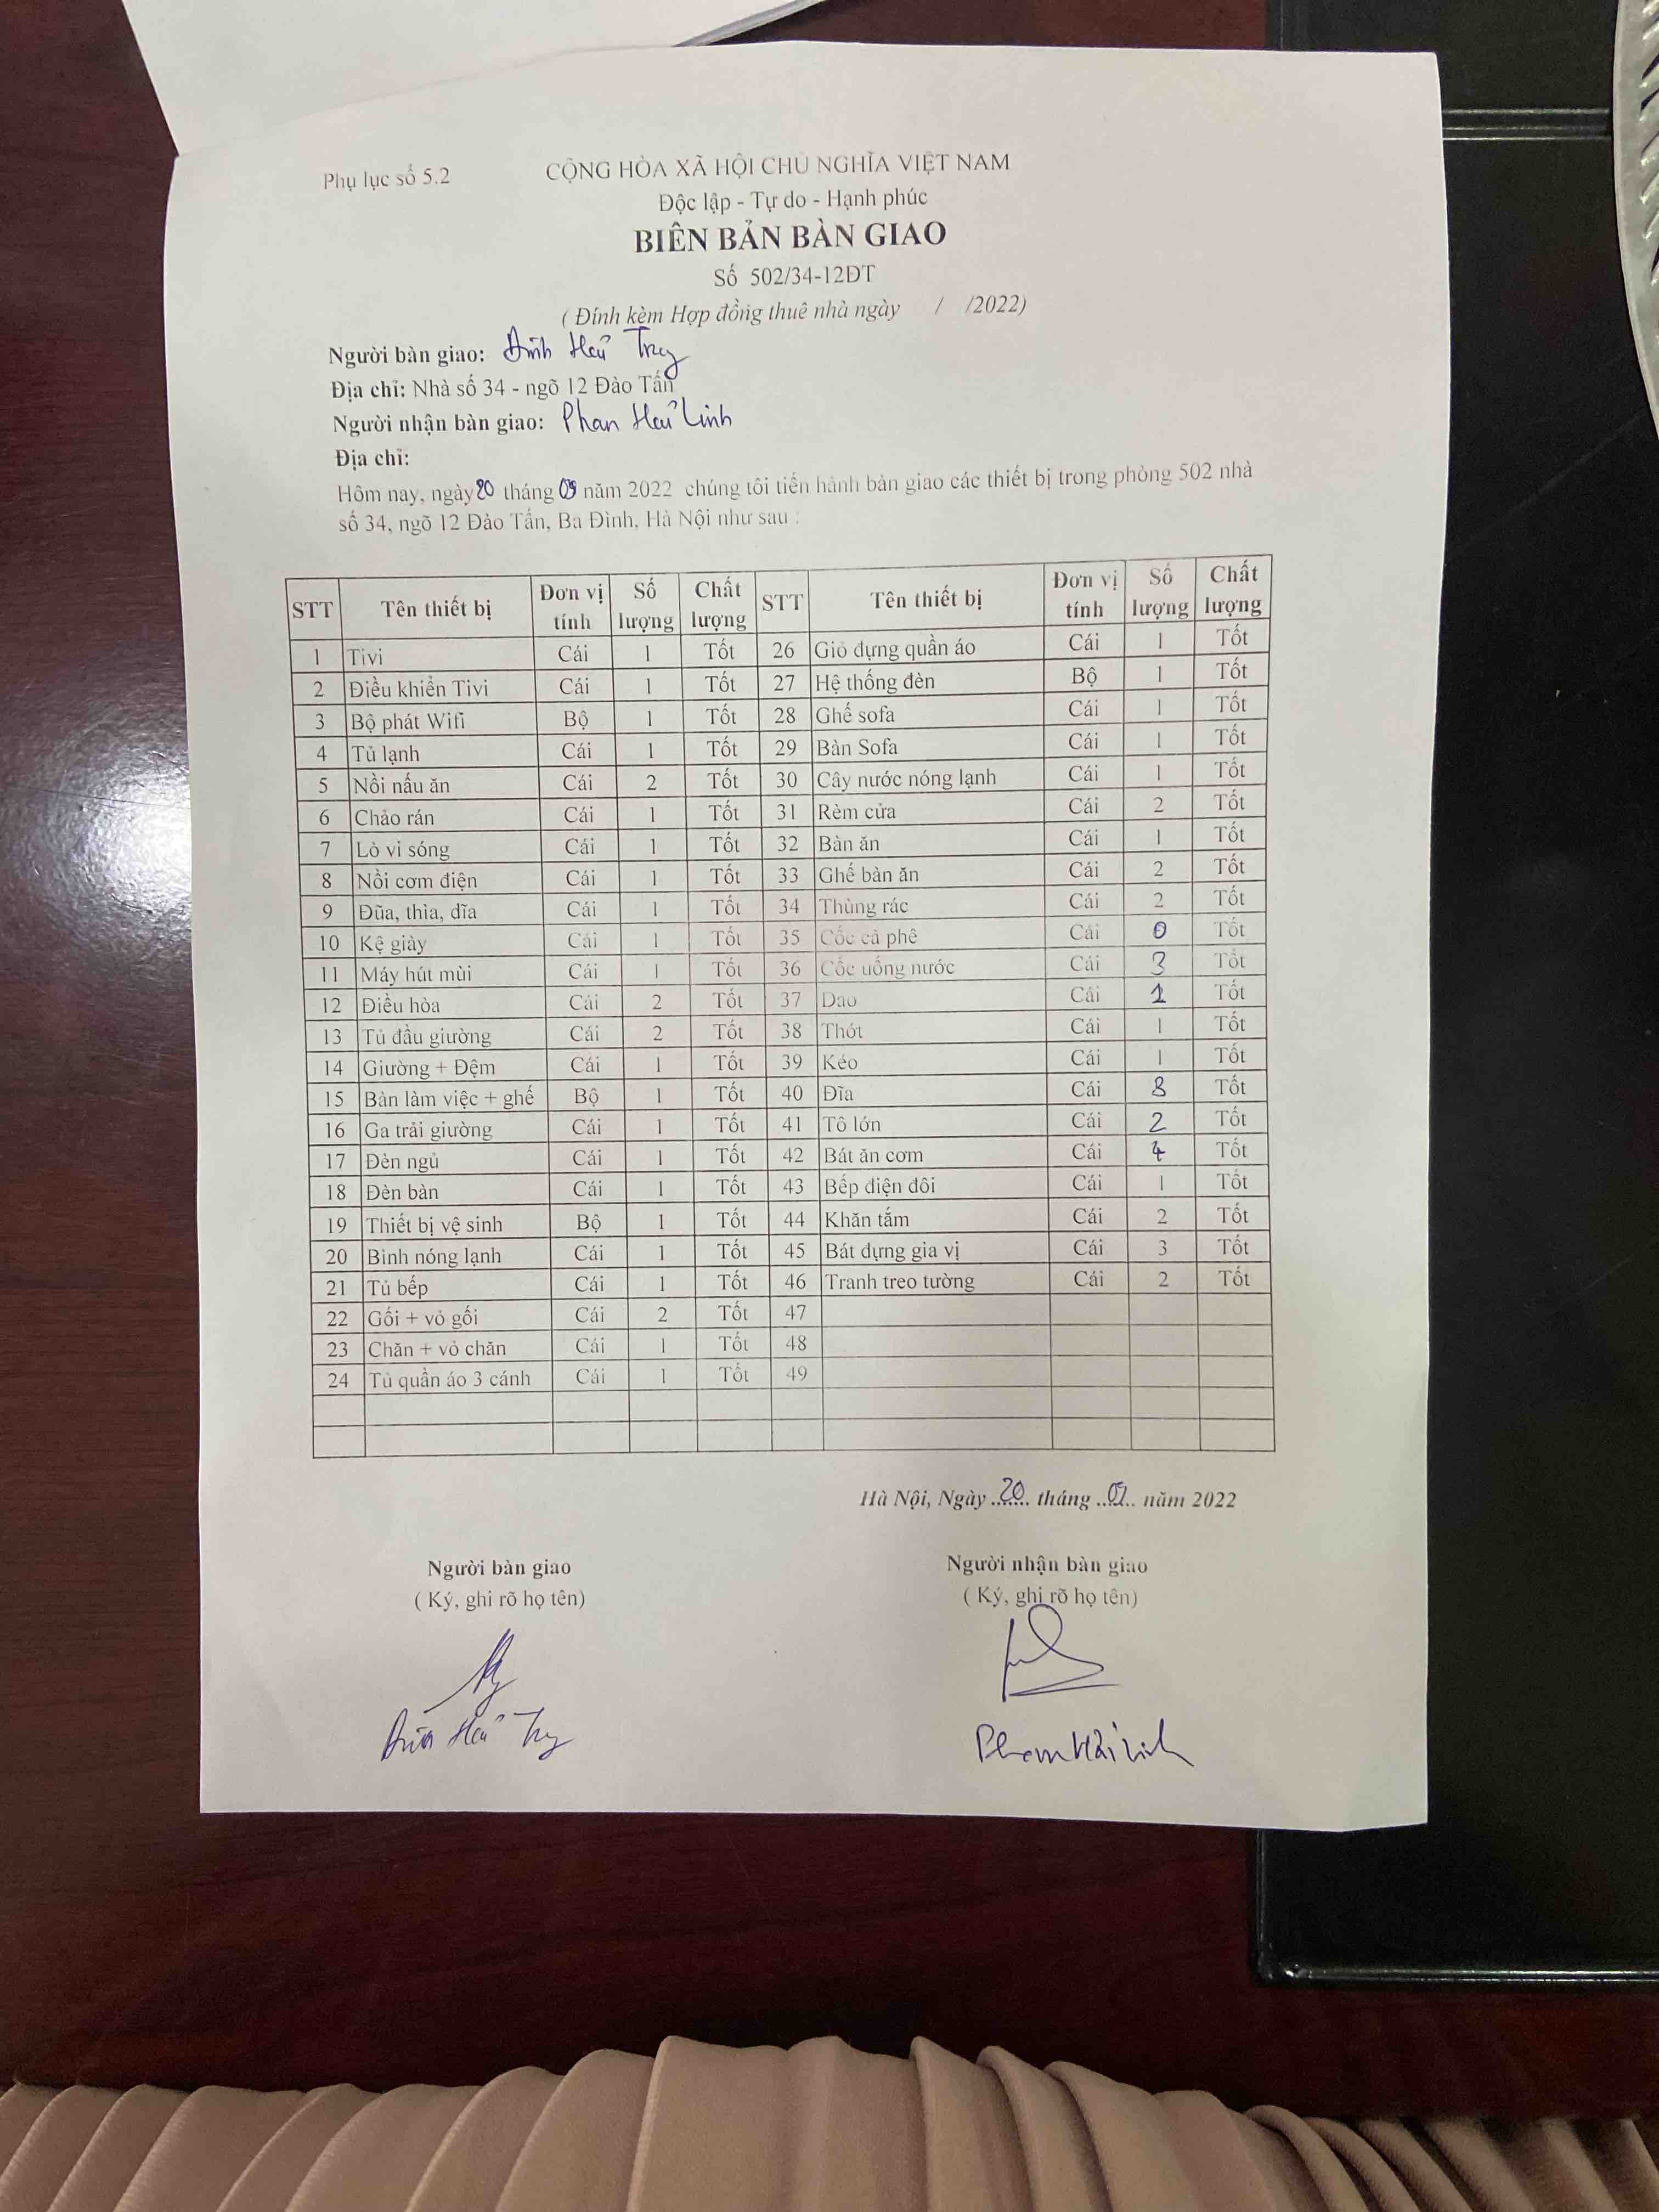 Phụ lục số 5.2
CỘNG HÒA XÃ HỘI CHỦ NGHĨA VIỆT NAM
Độc lập - Tự do - Hạnh phúc
BIÊN BẢN BÀN GIAO
Số 502/34-12ĐT
( Đính kèm Hợp đồng thuê nhà ngày / /2022)
Người bàn giao: Đinh
Địa chỉ: Nhà số 34 - ngõ 12 Đào Tấn
Người nhận bàn giao: Phan Hải Linh
Địa chỉ:
Hôm nay, ngày 20 tháng 09 năm 2022 chúng tôi tiến hành bàn giao các thiết bị trong phòng 502 nhà
số 34, ngõ 12 Đào Tấn, Ba Đình, Hà Nội như sau :
STT Tên thiết bị Đơn vị tính Số lượng Chất lượng STT Tên thiết bị Đơn vị tính Số lượng Chất lượng
1 Tivi Cái 1 Tốt 26 Giỏ đựng quần áo Cái 1 Tốt
2 Điều khiển Tivi Cái 1 Tốt 27 Hệ thống đèn Bộ 1 Tốt
3 Bộ phát Wifi Bộ 1 Tốt 28 Ghế sofa Cái 1 Tốt
4 Tủ lạnh Cái 1 Tốt 29 Bàn Sofa Cái 1 Tốt
5 Nồi nấu ăn Cái 2 Tốt 30 Cây nước nóng lạnh Cái 1 Tốt
6 Chảo rán Cái 1 Tốt 31 Rèm cửa Cái 2 Tốt
7 Lò vi sóng Cái 1 Tốt 32 Bàn ăn Cái 1 Tốt
8 Nồi cơm điện Cái 1 Tốt 33 Ghế bàn ăn Cái 2 Tốt
9 Đũa, thìa, dĩa Cái 1 Tốt 34 Thùng rác Cái 2 Tốt
10 Kệ giày Cái 1 Tốt 35 Cốc cà phê Cái 0 Tốt
11 Máy hút mùi Cái 1 Tốt 36 Cốc uống nước Cái 3 Tốt
12 Điều hòa Cái 2 Tốt 37 Dao Cái 1 Tốt
13 Tủ đầu giường Cái 2 Tốt 38 Thớt Cái 1 Tốt
14 Giường + Đệm Cái 1 Tốt 39 Kéo Cái 1 Tốt
15 Bàn làm việc + ghế Bộ 1 Tốt 40 Đĩa Cái 8 Tốt
16 Ga trải giường Cái 1 Tốt 41 Tô lớn Cái 2 Tốt
17 Đèn ngủ Cái 1 Tốt 42 Bát ăn cơm Cái 4 Tốt
18 Đèn bàn Cái 1 Tốt 43 Bếp điện đôi Cái 1 Tốt
19 Thiết bị vệ sinh Bộ 1 Tốt 44 Khăn tắm Cái 2 Tốt
20 Bình nóng lạnh Cái 1 Tốt 45 Bát đựng gia vị Cái 3 Tốt
21 Tủ bếp Cái 1 Tốt 46 Tranh treo tường Cái 2 Tốt
22 Gối + vỏ gối Cái 2 Tốt 47
23 Chăn + vỏ chăn Cái 1 Tốt 48
24 Tủ quần áo 3 cánh Cái 1 Tốt 49
Hà Nội, Ngày 20 tháng 09 năm 2022
Người bàn giao Người nhận bàn giao
( Ký, ghi rõ họ tên) ( Ký, ghi rõ họ tên)
Đinh Phan Hải Linh